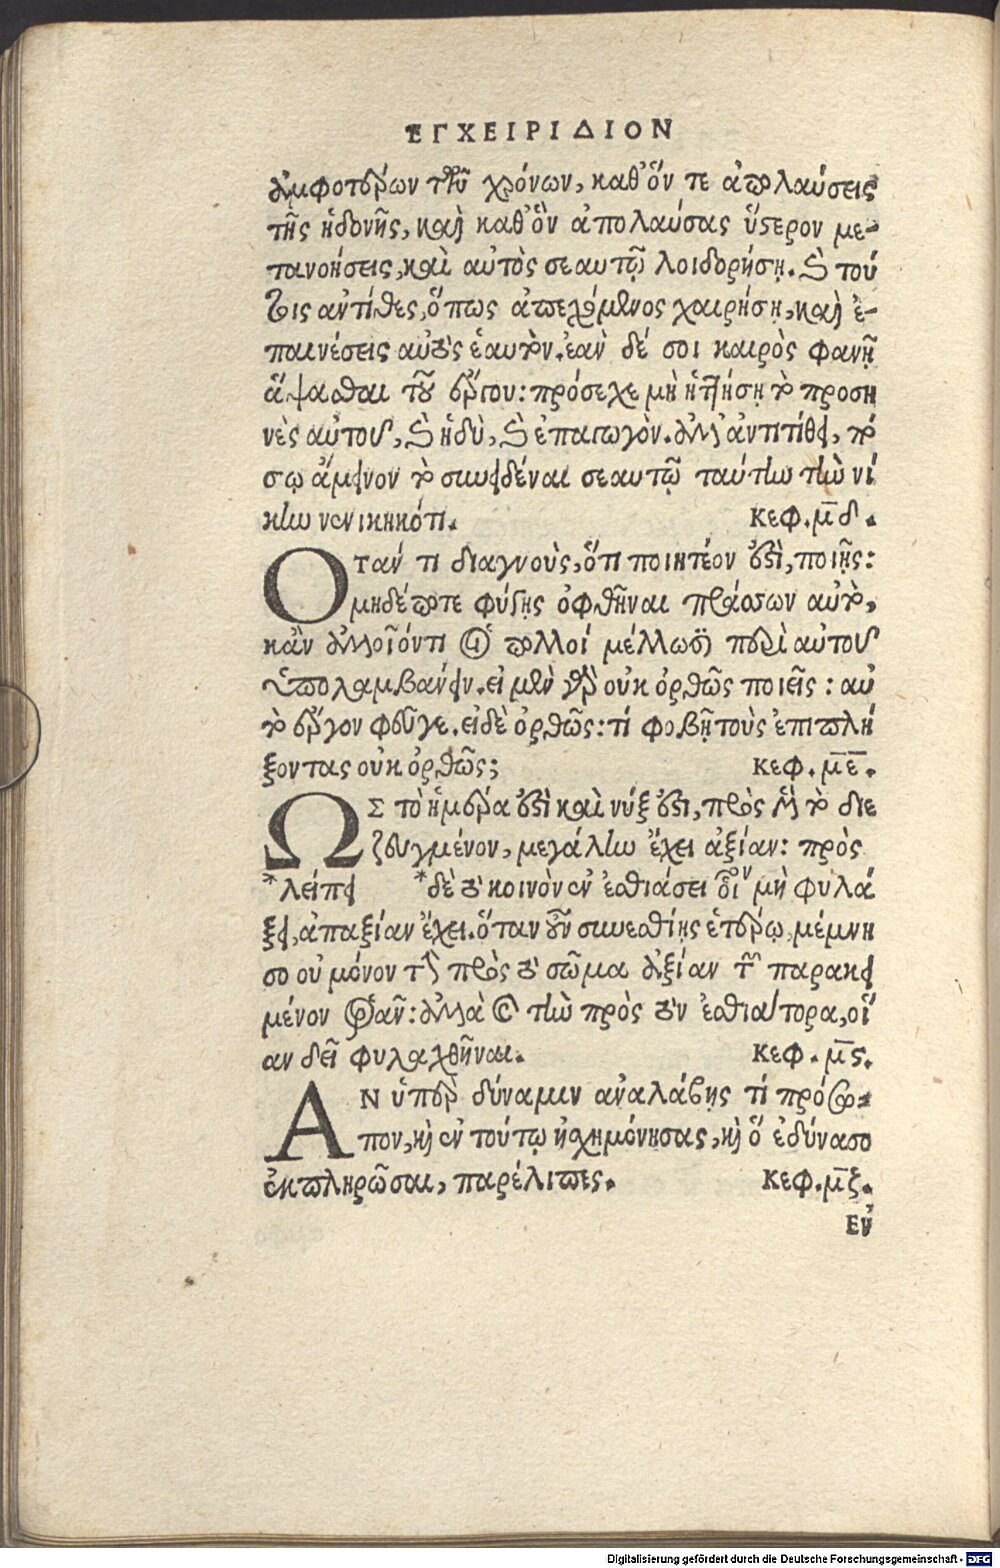 ΕΓΧΕΙΡΙΔΙΟΝ
ἀμφοτέρων τῶν χρόνων, καθ' ὅν τε ἀπολαύσεις
τῆς ἡδονῆς, καὶ καθ' ὃν ἀπολαύσας ὕστερον με-
τανοήσεις, καὶ αὐτὸς σεαυτῷ λοιδορήσῃ. καὶ τού
τοις ἀντίθες, ὅπως ἀπεχόμενος χαιρήσῃ, καὶ ἐ-
παινέσεις αὐτὸς ἑαυτόν. ἐὰν δέ σοι καιρὸς φανῇ
ἅψασθαι τοῦ ἔργου: πρόσεχε μὴ ἡττήσῃ τὸ προση
νὲς αὐτοῦ, καὶ ἡδὺ, καὶ ἐπαγωγὸν. ἀλλ' ἀντιτίθει, πό
σῳ ἄμεινον τὸ συνειδέναι σεαυτῷ ταύτην τὴν νί
κην νενικηκότι. ΚΕΦ. μ̄δ.
Οταν τι διαγνοὺς, ὅτι ποιητέον ἐστὶ, ποιῇς:
μηδέποτε φύγῃς ὀφθῆναι πράσσων αὐτὸ,
κἂν ἀλλοῖόν τι οἱ πολλοί μέλλωσι περὶ αὐτοῦ
ὑπολαμβάνειν. εἰ μὲν γὰρ οὐκ ὀρθῶς ποιεῖς: αὐ
τὸ ἔργον φεῦγε. εἰ δὲ ὀρθῶς: τί φοβῇ τοὺς ἐπιπλή
ξοντας οὐκ ὀρθῶς; ΚΕΦ. μ̄ε̄.
ΩΣ τὸ ἡμέρα ἐστὶ καὶ νύξ ἐστι, πρὸς μὲν τὸ διε
ζευγμένον, μεγάλην ἔχει ἀξίαν: πρὸς
*λείπει *δὲ τὸ κοινὸν ἐν ἑστιάσει οἷον μὴ φυλά
ξει, ἀπαξίαν ἔχει. ὅταν οὖν συνεσθίῃς ἑτέρῳ, μέμνη
σο οὐ μόνον τὴν πρὸς τὸ σῶμα ἀξίαν τῶν παρακει
μένων ὁρᾶν: ἀλλὰ καὶ τὴν πρὸς τὸν ἑστιάτορα, οἵ
αν δεῖ φυλαχθῆναι. ΚΕΦ. μ̄ς.
ΑΝ ὑπὲρ δύναμιν ἀναλάβῃς τί πρόσω-
πον, καὶ ἐν τούτῳ ἠσχημόνησας, καὶ ὅ ἐδύνασο
ἐκπληρῶσαι, παρέλιπες. ΚΕΦ. μ̄ζ.
ΕΝ